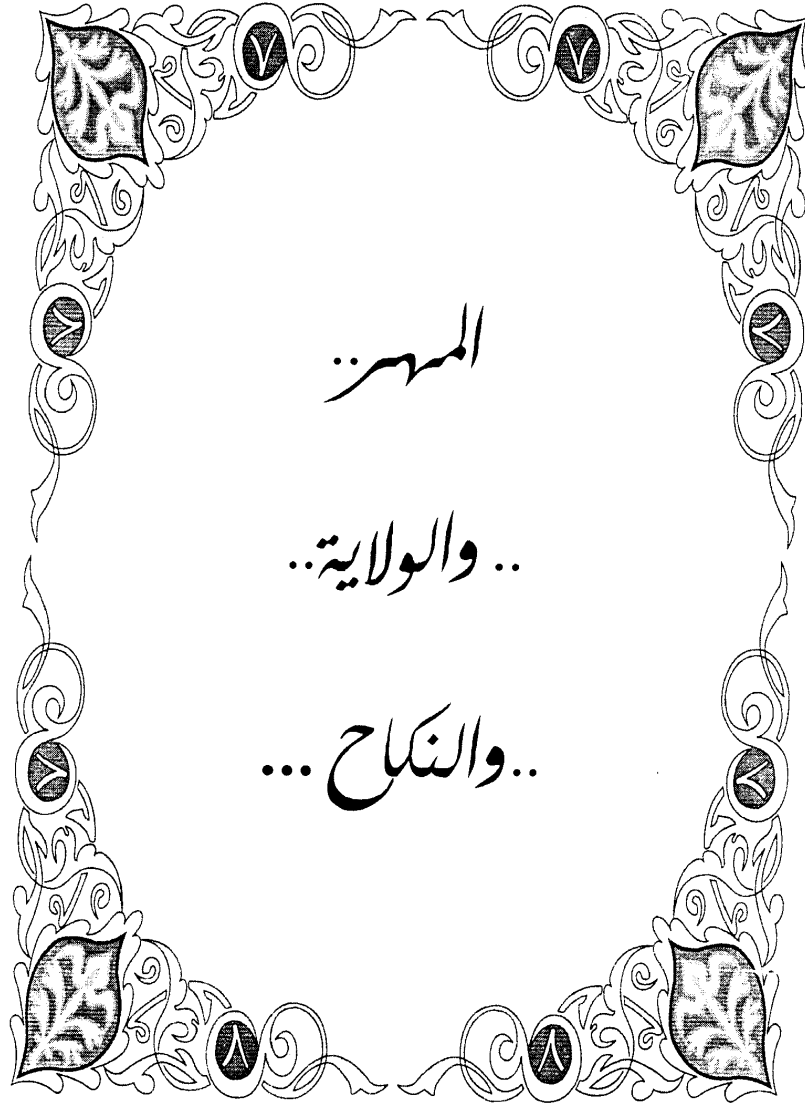 المهر..
.. والولاية..
..والنكاح ...